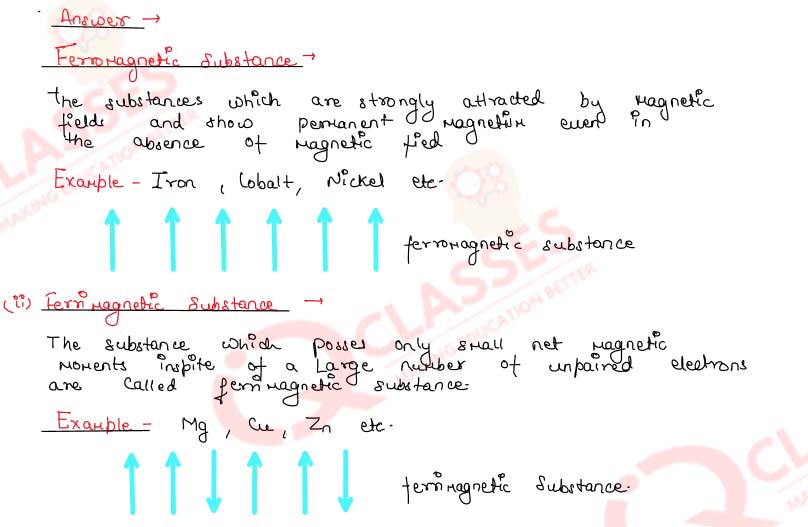 Answer →
Ferromagnetic Substance →
The substances which are strongly attracted by magnetic
fields and show permanent magnetism even in
the absence of magnetic fied
Example - Iron , Cobalt, Nickel etc.
ferromagnetic substance
(ii) Ferrimagnetic Substance →
The substance which posses only small net magnetic
moments inspite of a Large number of unpaired electrons
are called ferrimagnetic substance.
Example - Mg , Cu , Zn etc.
ferrimagnetic Substance.
CLASSES
MAKING EDUCATION BETTER
CLASSES
EDUCATION BETTER
CLAS